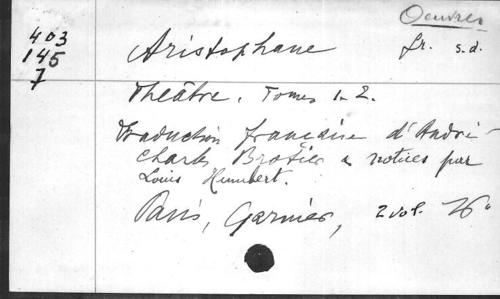 Oeuvres
403 Aristophane fr. s.d.
145
7
Théâtre. Tomes 1-2.
Traduction française d'André-
Charles Brotier & notices par
Louis Humbert.
Paris, Garnier, 2 vol. 16°